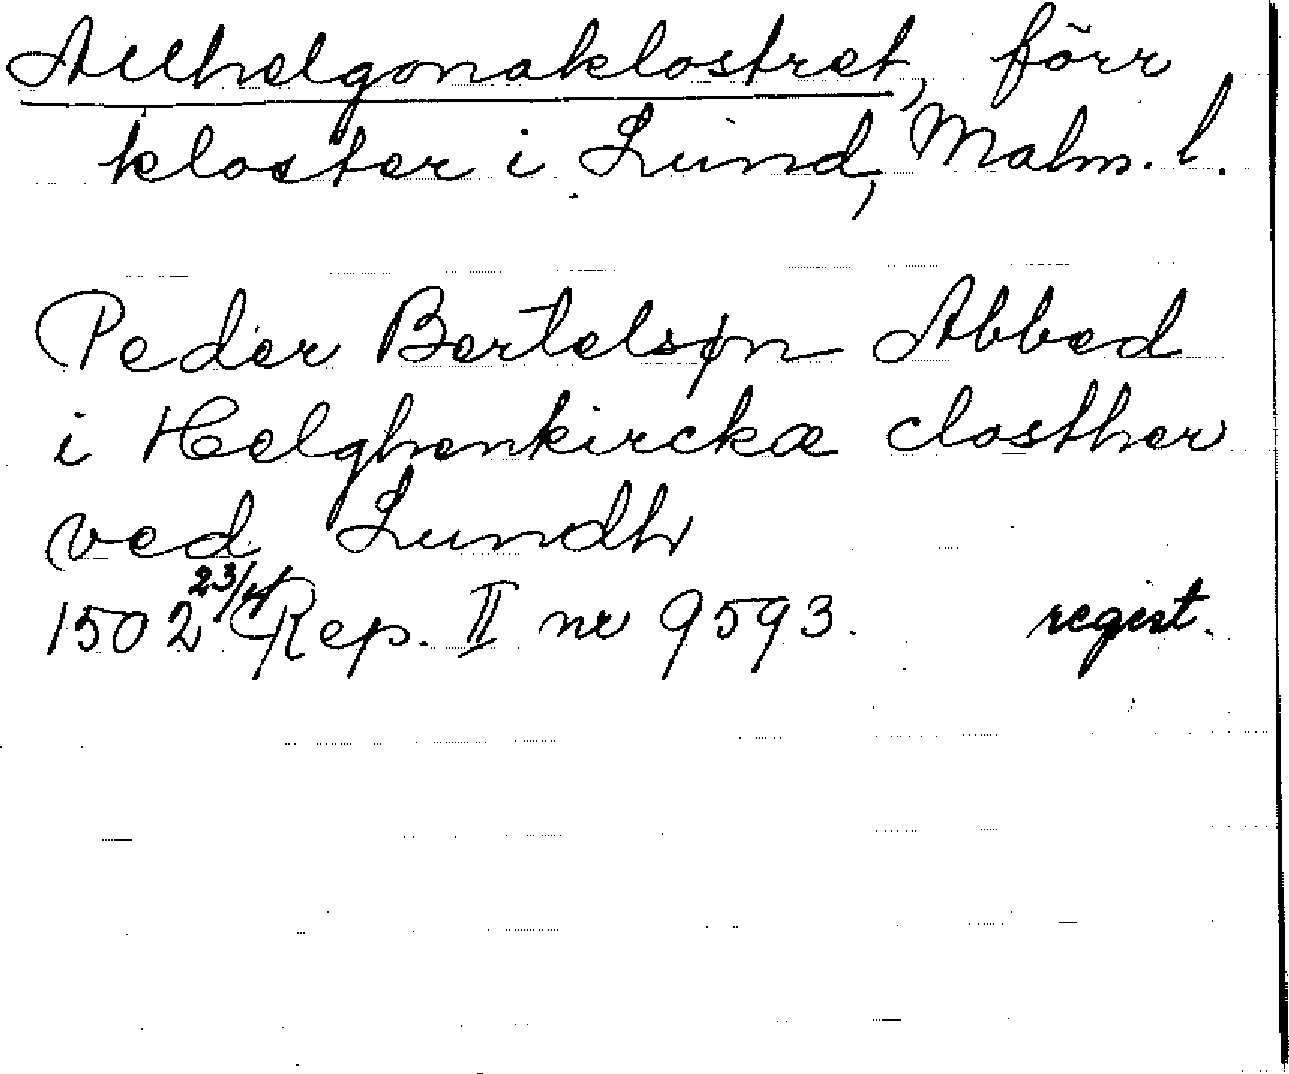 Allhelgonaklostret, förr
kloster i Lund, Malm. l.
Peder Bertelsøn Abbed
i Helghenkirckæ closther
ved Lundh
1502 23/4 Rep. II nr 9593. regist.